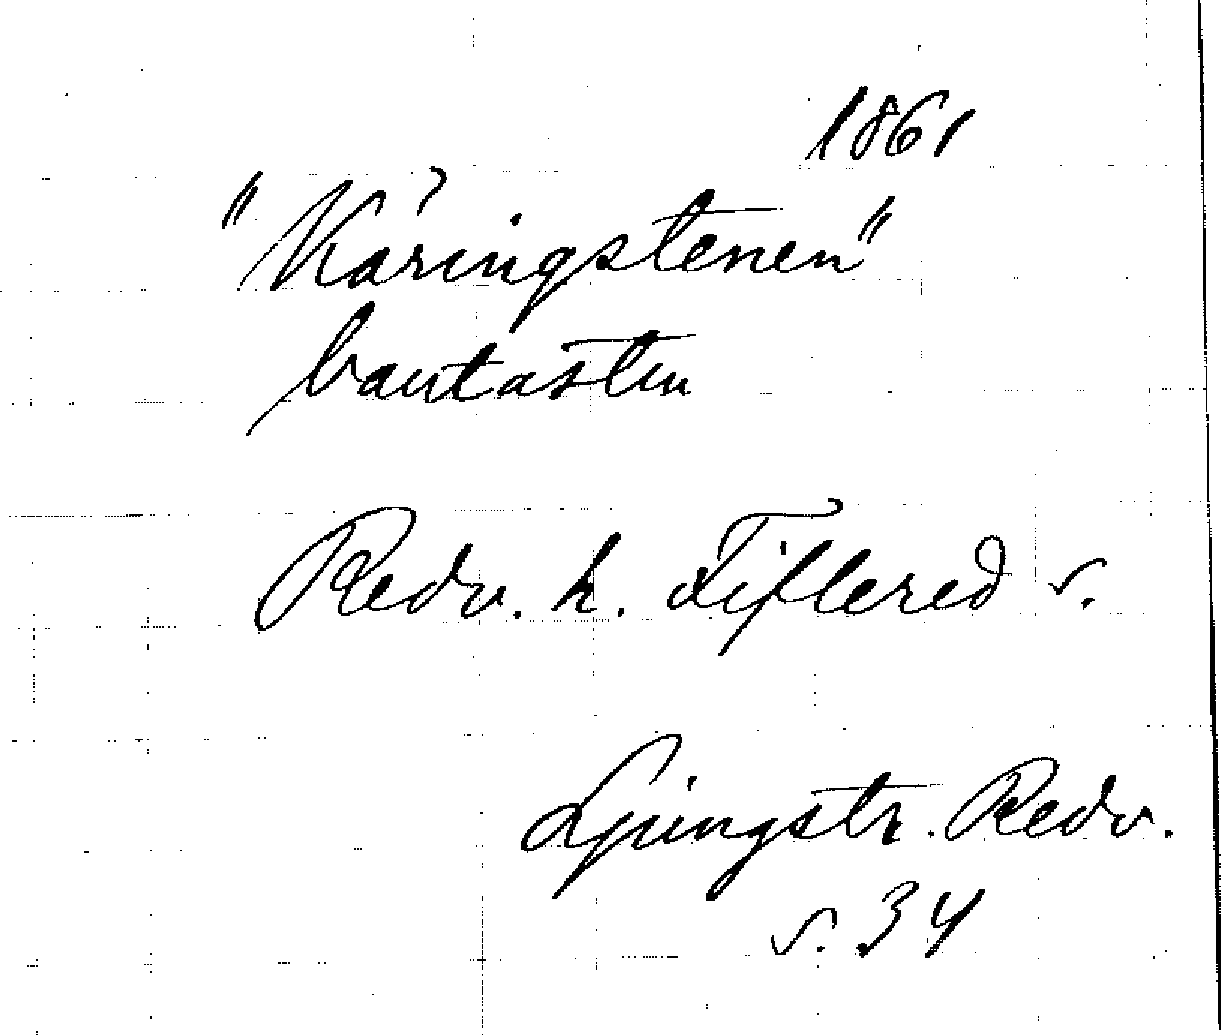 1861
"Käringstenen"
bautasten
Redv. h. Tiflered s.
Ljungstr. Redv.
s. 34